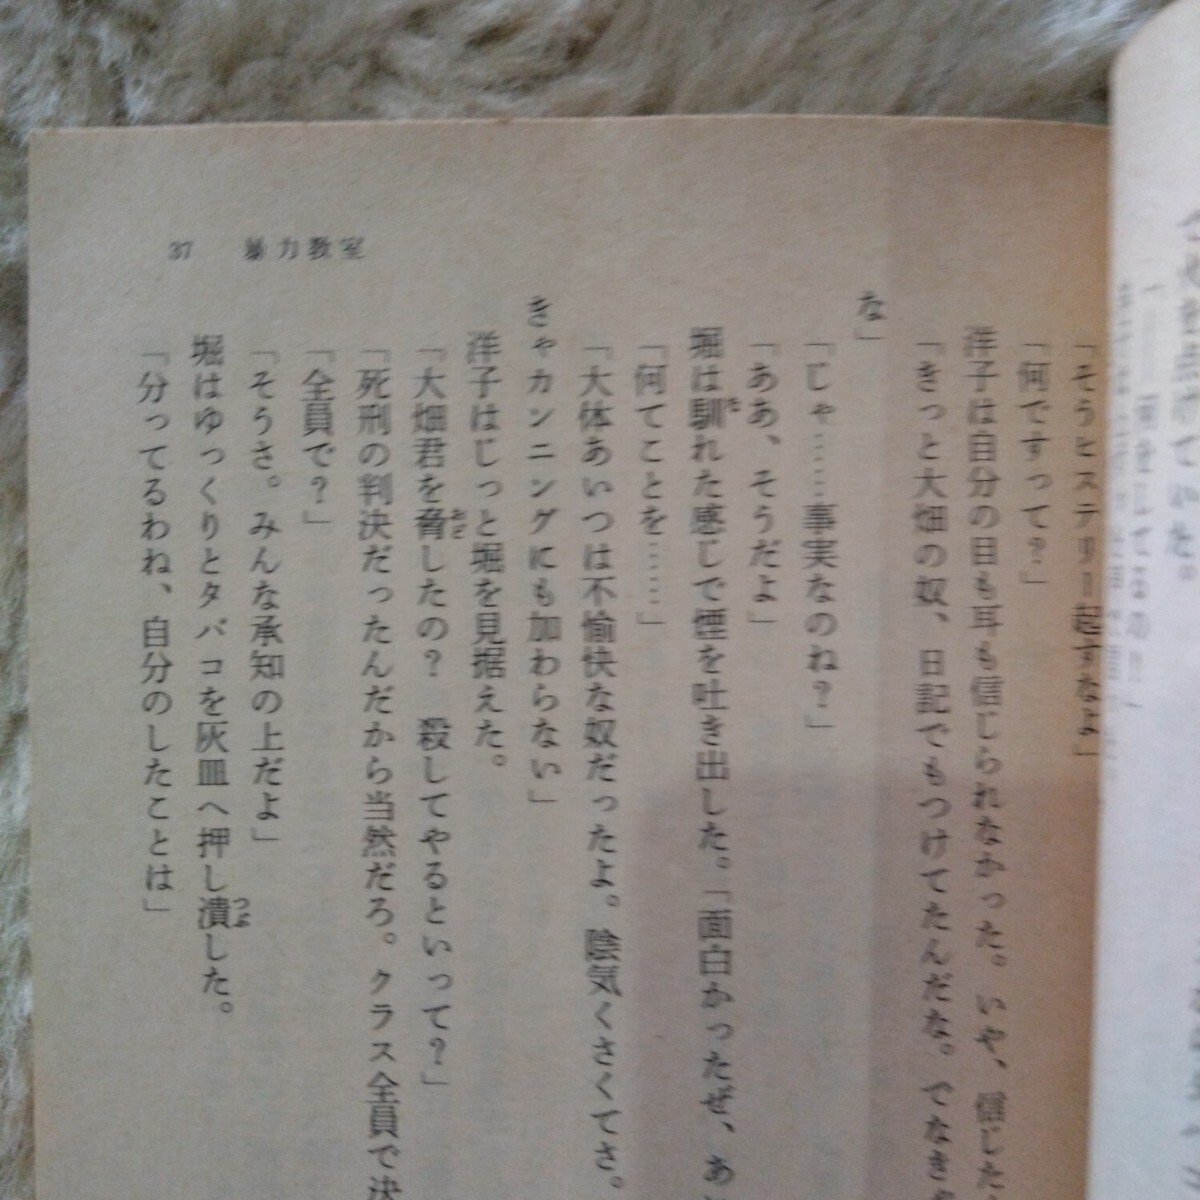 37 暴力教室
「そうヒステリー起すなよ」
「何ですって？」
洋子は自分の目も耳も信じられなかった。いや、信じた
「きっと大畑の奴、日記でもつけてたんだな。でなき
な」
「じゃ……事実なのね？」
「ああ、そうだよ」
堀は馴れた感じで煙を吐き出した。「面白かったぜ、あ
「何てことを……」
「大体あいつは不愉快な奴だったよ。陰気くさくてさ。
きゃカンニングにも加わらない」
洋子はじっと堀を見据えた。
「大畑君を脅したの？　殺してやるといって？」
「死刑の判決だったんだから当然だろ。クラス全員で決
「全員で？」
「そうさ。みんな承知の上だよ」
堀はゆっくりとタバコを灰皿へ押し潰した。
「分ってるわね、自分のしたことは」